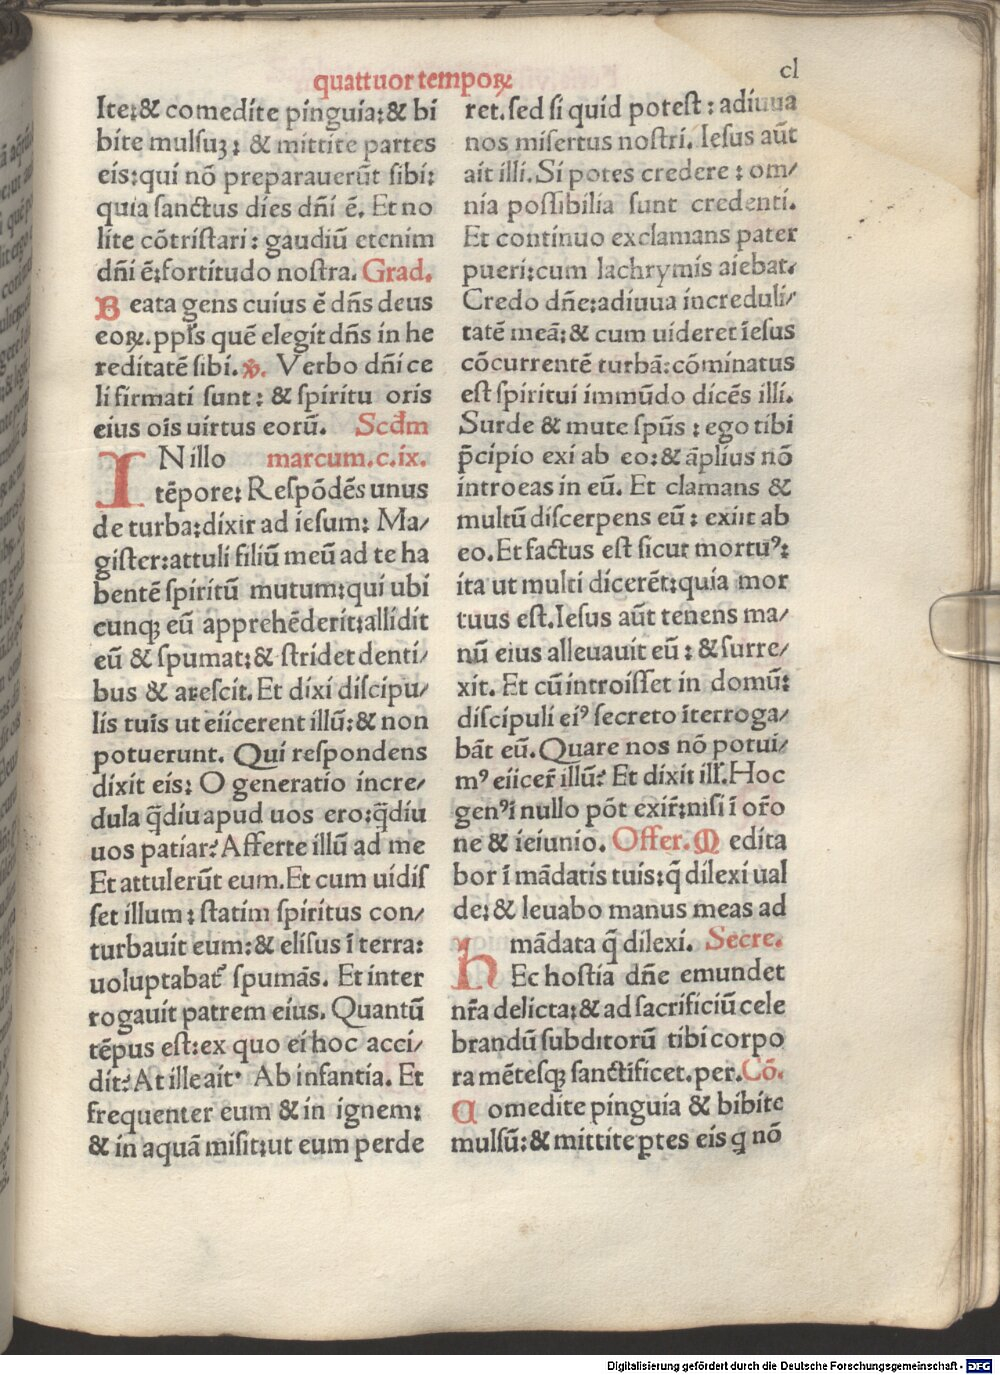 quattuor tempoꝝ
cl
Ite:& comedite pinguia:& bi
bite mulsuʒ: & mittite partes
eis:qui nō preparauerūt sibi:
quia sanctus dies dn̄i ē. Et no
lite cōtristari: gaudiū etenim
dn̄i ē:fortitudo nostra. Grad.
Beata gens cuius ē dn̄s deus
eoꝝ.ppl̄s quē elegit dn̄s in he
reditatē sibi. ℣. Verbo dn̄i ce
li firmati sunt: & spiritu oris
eius oīs uirtus eorū. Scd̄m
INillo marcum.c.ix.
tēpore: Respōdēs unus
de turba:dixit ad iesum: Ma/
gister:attuli filiū meū ad te ha
bentē spiritū mutum:qui ubi
cunqꝫ eū apprehēderit:allidit
eū & spumat:& stridet denti/
bus & arescit. Et dixi discipu/
lis tuis ut eiicerent illū:& non
potuerunt. Qui respondens
dixit eis: O generatio incre/
dula q̄diu apud uos ero:q̄diu
uos patiar? Afferte illū ad me
Et attulerūt eum. Et cum uidis
set illum: statim spiritus con/
turbauit eum:& elisus ī terra:
uoluptabat᷑ spumās. Et inter
rogauit patrem eius. Quantū
tēpus est:ex quo ei hoc acci/
dit? At ille ait· Ab infantia. Et
frequenter eum & in ignem:
& in aquā misit:ut eum perde
ret. sed si quid potest: adiuua
nos misertus nostri. Iesus aūt
ait illi. Si potes credere: om/
nia possibilia sunt credenti.
Et continuo exclamans pater
pueri:cum lachrymis aiebat.
Credo dn̄e:adiuua increduli/
tatē meā:& cum uideret iesus
cōcurrentē turbā:cōminatus
est spiritui immūdo dicēs illi.
Surde & mute sp̄us: ego tibi
p̄cipio exi ab eo:& āplius nō
introeas in eū. Et clamans &
multū discerpens eū: exiit ab
eo. Et factus est sicut mortuꝰ:
ita ut multi dicerēt:quia mor
tuus est. Iesus aūt tenens ma/
nū eius alleuauit eū: & surre/
xit. Et cū introisset in domū:
discipuli eiꝰ secreto īterroga/
bāt eū. Quare nos nō potui/
mꝰ eiicer̄ illū? Et dixit ill̄. Hoc
genꝰ ī nullo pōt exir̄:nisi ī or̄o
ne & ieiunio. Offer. Medita
bor ī mādatis tuis:q̄ dilexi ual
de:& leuabo manus meas ad
mādata q̄ dilexi. Secre.
hEc hostia dn̄e emundet
nr̄a delicta:& ad sacrificiū cele
brandū subditorū tibi corpo
ra mētesqꝫ sanctificet. per. Cō.
Comedite pinguia & bibite
mulsū:& mittite ꝑtes eis q nō
Digitalisierung gefördert durch die Deutsche Forschungsgemeinschaft - DFG